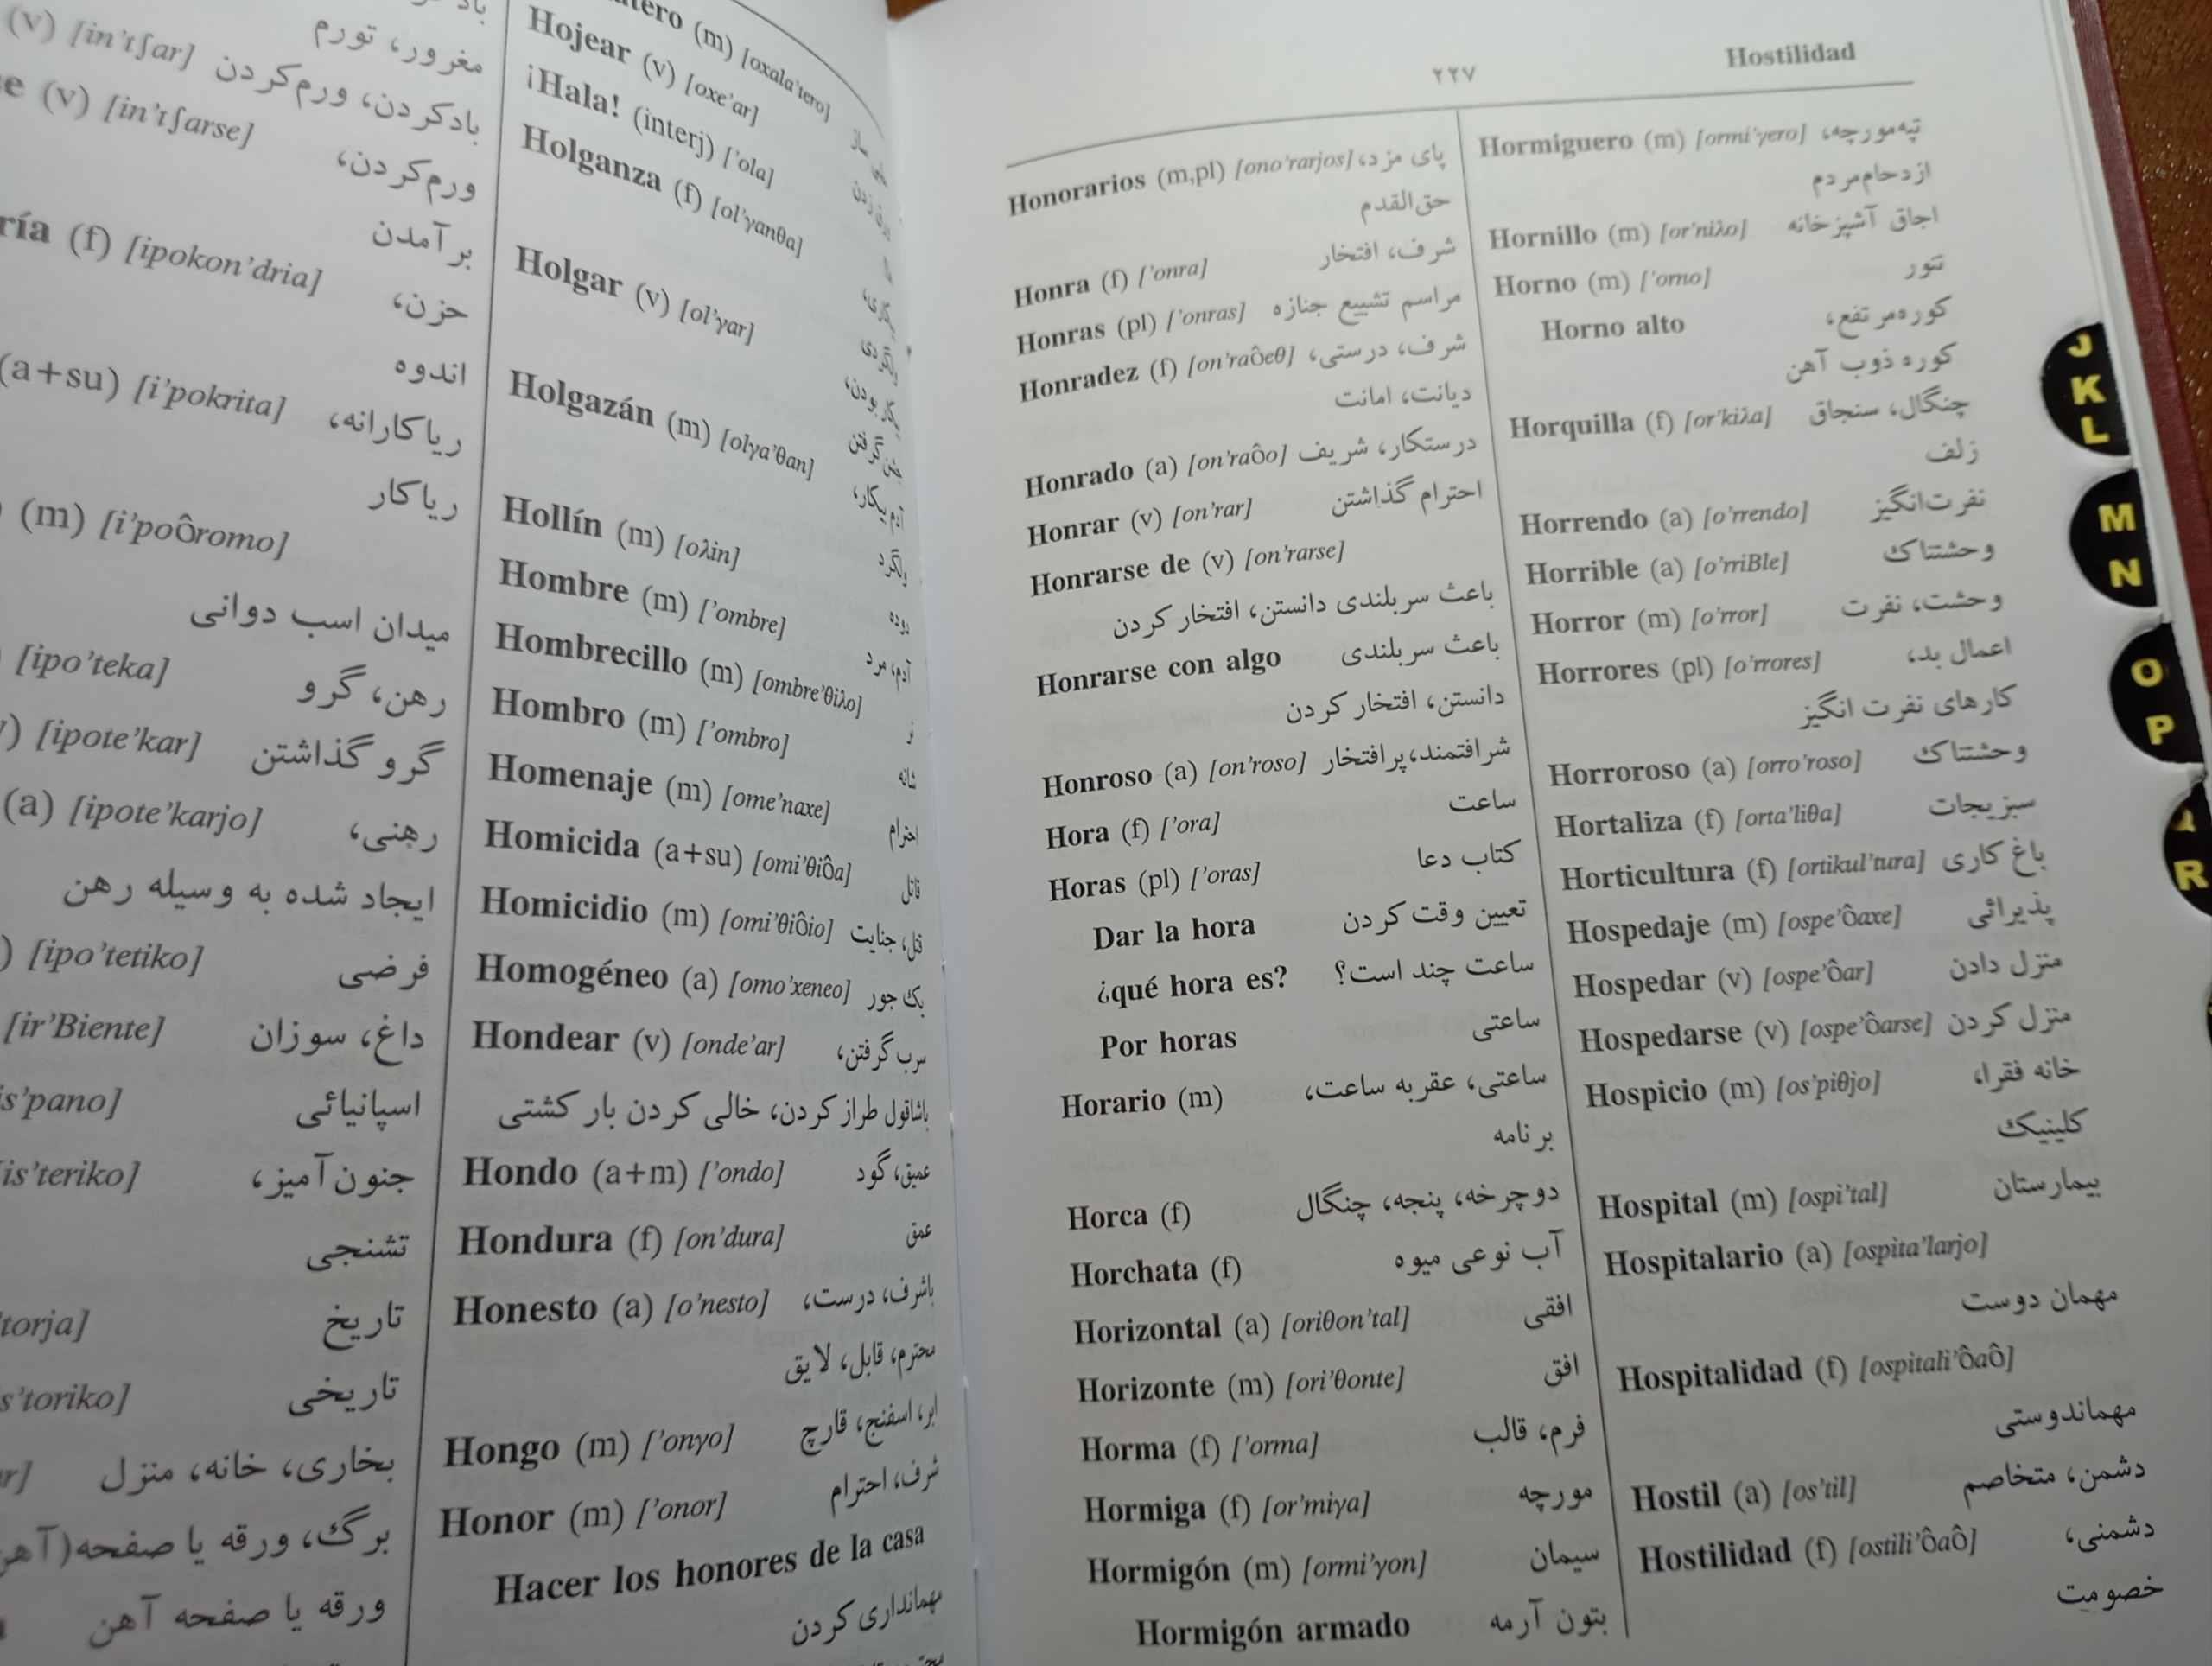 باد
(v) [in'tʃar]
مغرور، تورم
بادکردن، ورم‌کردن
e (v) [in'tʃarse]
ورم‌کردن،
برآمدن
ría (f) [ipokon'dria]
حزن،
اندوه
(a+su) [i'pokrita] ریاکارانه،
ریاکار
(m) [i'poôromo]
میدان اسب دوانی
[ipo'teka] رهن، گرو
[ipote'kar] گرو گذاشتن
(a) [ipote'karjo] رهنی،
ایجاد شده به وسیله رهن
[ipo'tetiko] فرضی
[ir'Biente] داغ، سوزان
is'pano] اسپانیائی
is'teriko] جنون‌آمیز،
تشنجی
'torja] تاریخ
s'toriko] تاریخی
ar] بخاری، خانه، منزل
برگ، ورقه یا صفحه(آهن
ورقه یا صفحه آهن
tero (m) [oxala'tero]
Hojear (v) [oxe'ar]
¡Hala! (interj) ['ola]
Holganza (f) [ol'γanθa]
Holgar (v) [ol'γar]
بودن،
گرفتن
Holgazán (m) [olγa'θan]
ولگرد
Hollín (m) [oλin] دوده
Hombre (m) ['ombre] آدم، مرد
Hombrecillo (m) [ombre'θiλo]
Hombro (m) ['ombro] شانه
Homenaje (m) [ome'naxe] احترام
Homicida (a+su) [omi'θiôa] قاتل
Homicidio (m) [omi'θiôio] قتل، جنایت
Homogéneo (a) [omo'xeneo] یک جور
Hondear (v) [onde'ar] سرب گرفتن،
باشاقول طراز کردن، خالی کردن بار کشتی
Hondo (a+m) ['ondo] عمیق، گود
Hondura (f) [on'dura] عمق
Honesto (a) [o'nesto] باشرف، درست،
محترم، قابل، لایق
Hongo (m) ['onγo] ابر، اسفنج، قارچ
Honor (m) ['onor] شرف، احترام
Hacer los honores de la casa
مهمانداری کردن
۲۲۷ Hostilidad
Honorarios (m,pl) [ono'rarjos] پای مزد،
حق‌القدم
Honra (f) ['onra] شرف، افتخار
Honras (pl) ['onras] مراسم تشییع جنازه
Honradez (f) [on'raôeθ] شرف، درستی،
دیانت، امانت
Honrado (a) [on'raôo] درستکار، شریف
Honrar (v) [on'rar] احترام گذاشتن
Honrarse de (v) [on'rarse]
باعث سربلندی دانستن، افتخار کردن
Honrarse con algo باعث سربلندی
دانستن، افتخار کردن
Honroso (a) [on'roso] شرافتمند، پرافتخار
Hora (f) ['ora] ساعت
Horas (pl) ['oras] کتاب دعا
Dar la hora تعیین وقت کردن
¿qué hora es? ساعت چند است؟
Por horas ساعتی
Horario (m) ساعتی، عقربه ساعت،
برنامه
Horca (f) دوچرخه، پنجه، چنگال
Horchata (f) آب نوعی میوه
Horizontal (a) [oriθon'tal] افقی
Horizonte (m) [ori'θonte] افق
Horma (f) ['orma] فرم، قالب
Hormiga (f) [or'miγa] مورچه
Hormigón (m) [ormi'γon] سیمان
Hormigón armado بتون آرمه
Hormiguero (m) [ormi'γero] تپه‌مورچه،
ازدحام‌مردم
Hornillo (m) [or'niλo] اجاق آشپزخانه
Horno (m) ['orno] تنور
Horno alto کوره‌مرتفع،
کوره ذوب آهن
Horquilla (f) [or'kiλa] چنگال، سنجاق
زلف
Horrendo (a) [o'rrendo] نفرت‌انگیز
Horrible (a) [o'rriBle] وحشتناک
Horror (m) [o'rror] وحشت، نفرت
Horrores (pl) [o'rrores] اعمال بد،
کارهای نفرت انگیز
Horroroso (a) [orro'roso] وحشتناک
Hortaliza (f) [orta'liθa] سبزیجات
Horticultura (f) [ortikul'tura] باغ کاری
Hospedaje (m) [ospe'ôaxe] پذیرائی
Hospedar (v) [ospe'ôar] منزل دادن
Hospedarse (v) [ospe'ôarse] منزل کردن
Hospicio (m) [os'piθjo] خانه فقرا،
کلینیک
Hospital (m) [ospi'tal] بیمارستان
Hospitalario (a) [ospita'larjo]
مهمان دوست
Hospitalidad (f) [ospitali'ôaô]
مهماندوستی
Hostil (a) [os'til] دشمن، متخاصم
Hostilidad (f) [ostili'ôaô] دشمنی،
خصومت
J
K
L
M
N
O
P
R